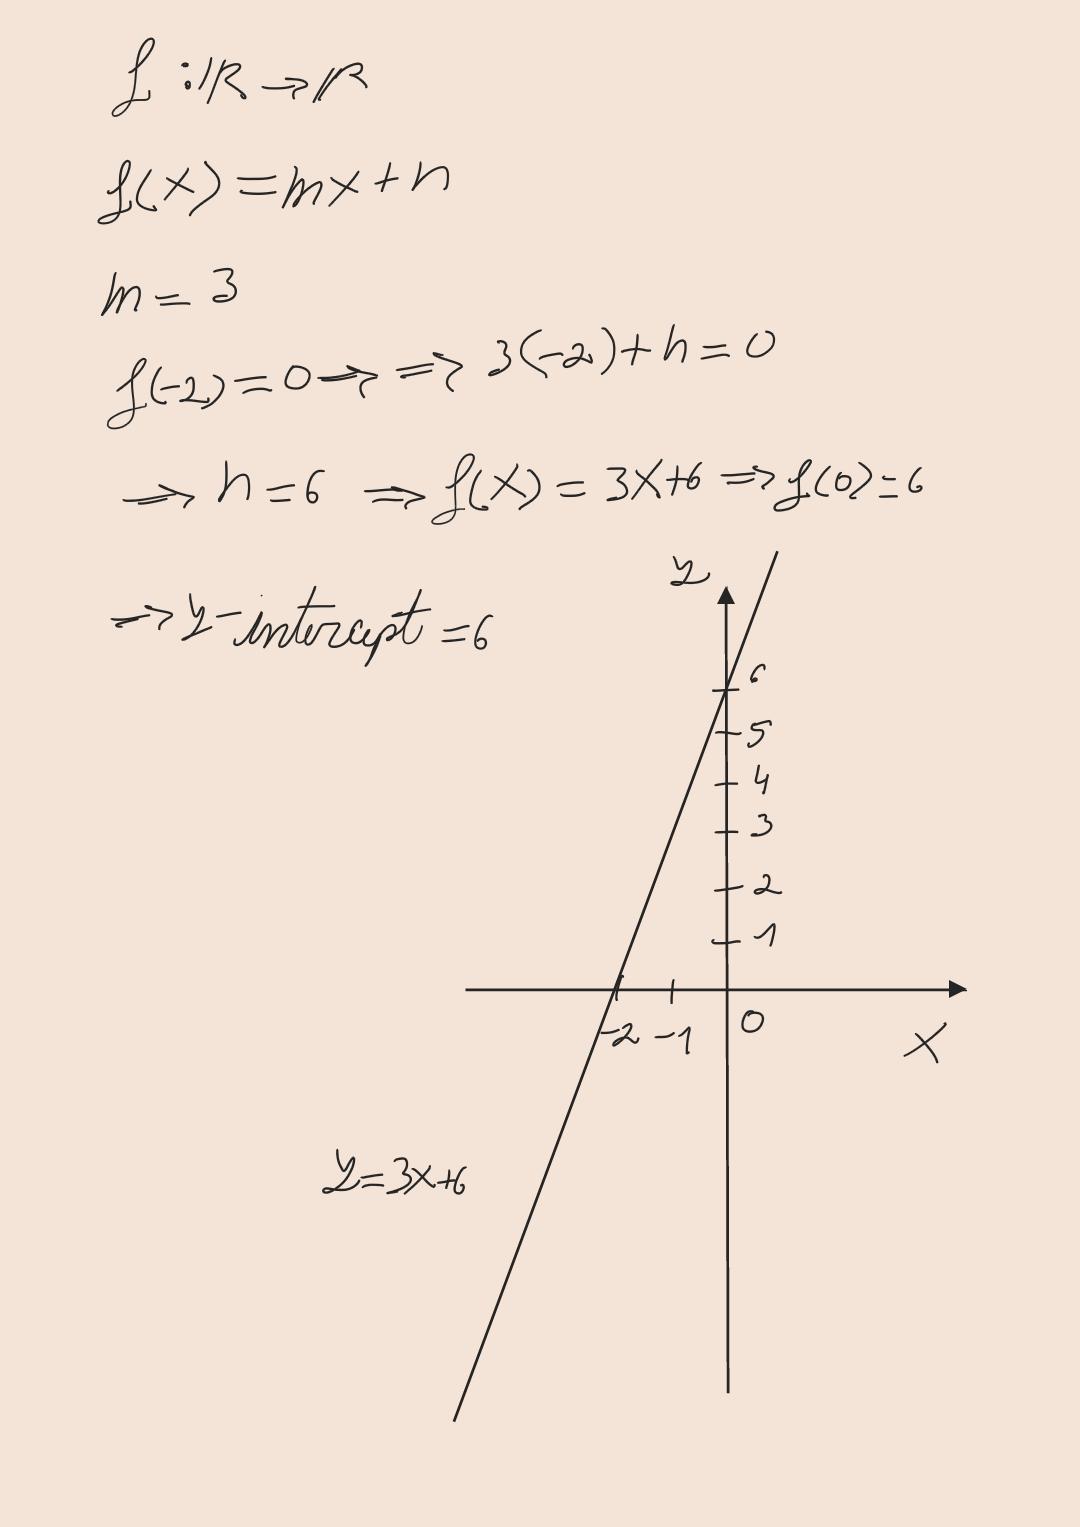 f : ℝ → ℝ
f(x) = mx + n
m = 3
f(-2) = 0 ⇒ ⇒ 3(-2) + n = 0
⇒ n = 6 ⇒ f(x) = 3x+6 ⇒ f(0) = 6
⇒ y-intercept = 6
y
6
5
4
3
2
1
-2 -1 0
x
y = 3x+6